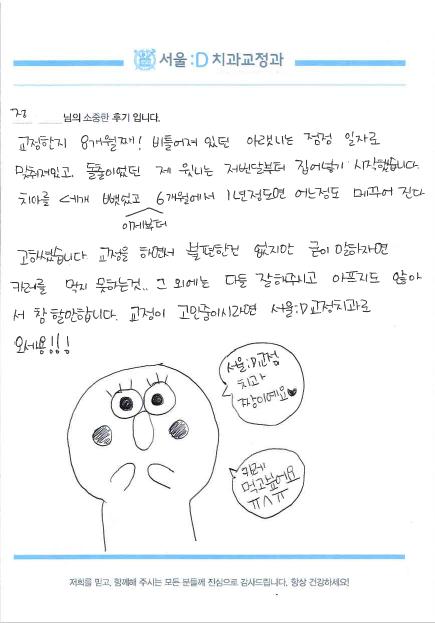 서울:D 치과교정과
정 님의 소중한 후기 입니다.
교정한지 8개월째! 비틀어져 있던 아랫니는 점점 일자로
맞춰져있고, 돌출이었던 제 윗니는 저번달부터 집어넣기 시작했습니다.
치아를 네개 뺐었고 6개월에서 1년정도면 어느정도 메꾸어 진다
이제부터
고했었습니다. 교정을 하면서 불편한건 없지만 굳이 말하자면
카레를 먹지 못하는것.. 그 외에는 다들 잘해주시고 아프지도 않아
서 참 할만합니다. 교정이 고민중이시라면 서울:D교정치과로
오세용!!!
서울:D교정
치과
짱이예요
카레
먹고싶어요
ㅠㅅㅠ
저희를 믿고, 함께해 주시는 모든 분들께 진심으로 감사드립니다. 항상 건강하세요!